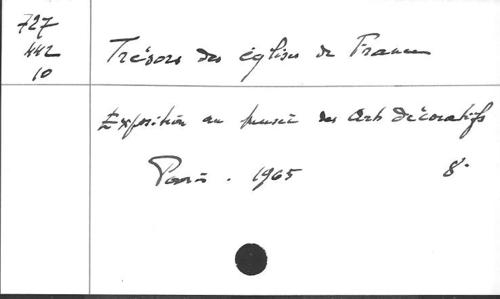 727
442
10
Trésors des églises de France
Exposition au musée des Arts Décoratifs
Paris . 1965 8°